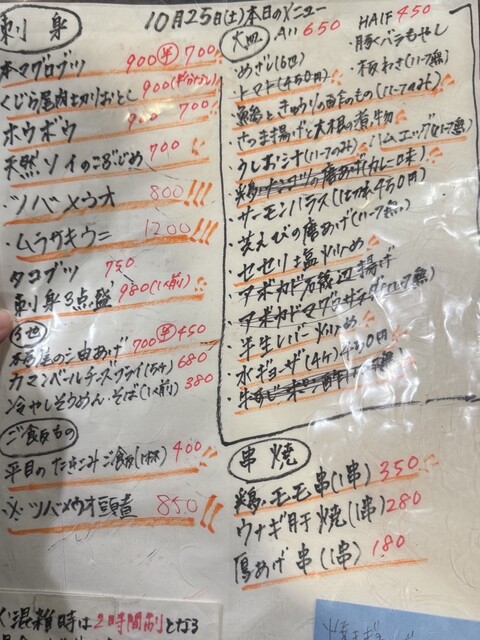 10月25日(土)本日のメニュー
刺身
本マグロブツ 900 半 700
くじら尾肉切りおとし 900
ホウボウ 900 700
天然ソイのこぶじめ 700
ツバメウオ 800!!!
・ムラサキウニ 1200!!!
タコブツ 750
刺身3点盛 980(1人前)
その他
700 半 450
カマンベールチーズフライ 680
冷やしそうめん・そば(1人前) 380
ご飯もの
平目のたきこみご飯 400
※ツバメウオ頭煮 850!!
大皿 All 650
HAlF 450
・めざし
・豚バラもやし
・トマト(450円)
・板わさ(ハーフ無)
・鶏ときゅうりの
・さつま揚げと大根の煮物
・うしお汁(ハーフのみ)
・ハムエッグ(ハーフ無)
・サーモンハラス
・芝えびの唐あげ(ハーフ無)
・セセリ塩炒め
・アボカド石垣辺揚げ
・半生レバー炒め
・水ギョーザ(4ヶ)450円
串焼
鶏モモ串(1串) 350
ウナギ肝焼(1串) 280
厚あげ串(1串) 180
混雑時は2時間制となる